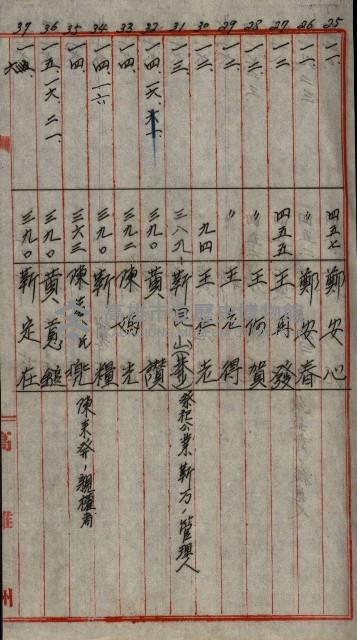 25 一二、 四五七 鄭安心
26 一二、 〃 鄭安春
27 一二、 四五五 王再發
28 一二、 〃 王何賀
29 一二、 〃 王老得
30 一二、 九四 王仁光
31 一三、 三八九 靳昆山 祭祀公業靳万ノ管理人
32 一四、一六、 三九〇 黃讚
33 一四、 三九二 陳媽光
34 一四、一六 三九〇 靳糧
35 一四 三六三 陳 兜 陳來發ノ親權者
36 一五、一六、二一、 三九〇 黃意
37 一六、 三九〇 靳定在
高雄州